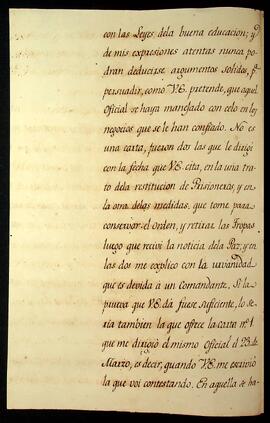 con las Leyes dela buena educacion; y
de mis expresiones atentas nunca po
dran deducirse argumentos solidos, pa.
persuadir, como V.E. pretende, que aquel
Oficial se haya manejado con celo en los
negocios que se le han confiado. No es
una carta, fueron dos las que le dirigi
con la fecha que V.E. cita, en la una tra
to dela restitucion de Prisioneros, y en
la otra delas medidas, que tomé para
conservar el orden, y retirar las Tropas
luego que recivi la noticia dela Paz; y en
las dos me explico con la urvanidad
que es devida à un Comandante. Si la
prueva que V.E. dá fuese suficiente, lo se
ria tambien la que ofrece la carta nº. 1.
que me dirigió el mismo Oficial el 23 de
Marzo, es decir, quando V.E. me escrivió
la que voi contestando. En aquella se ha-